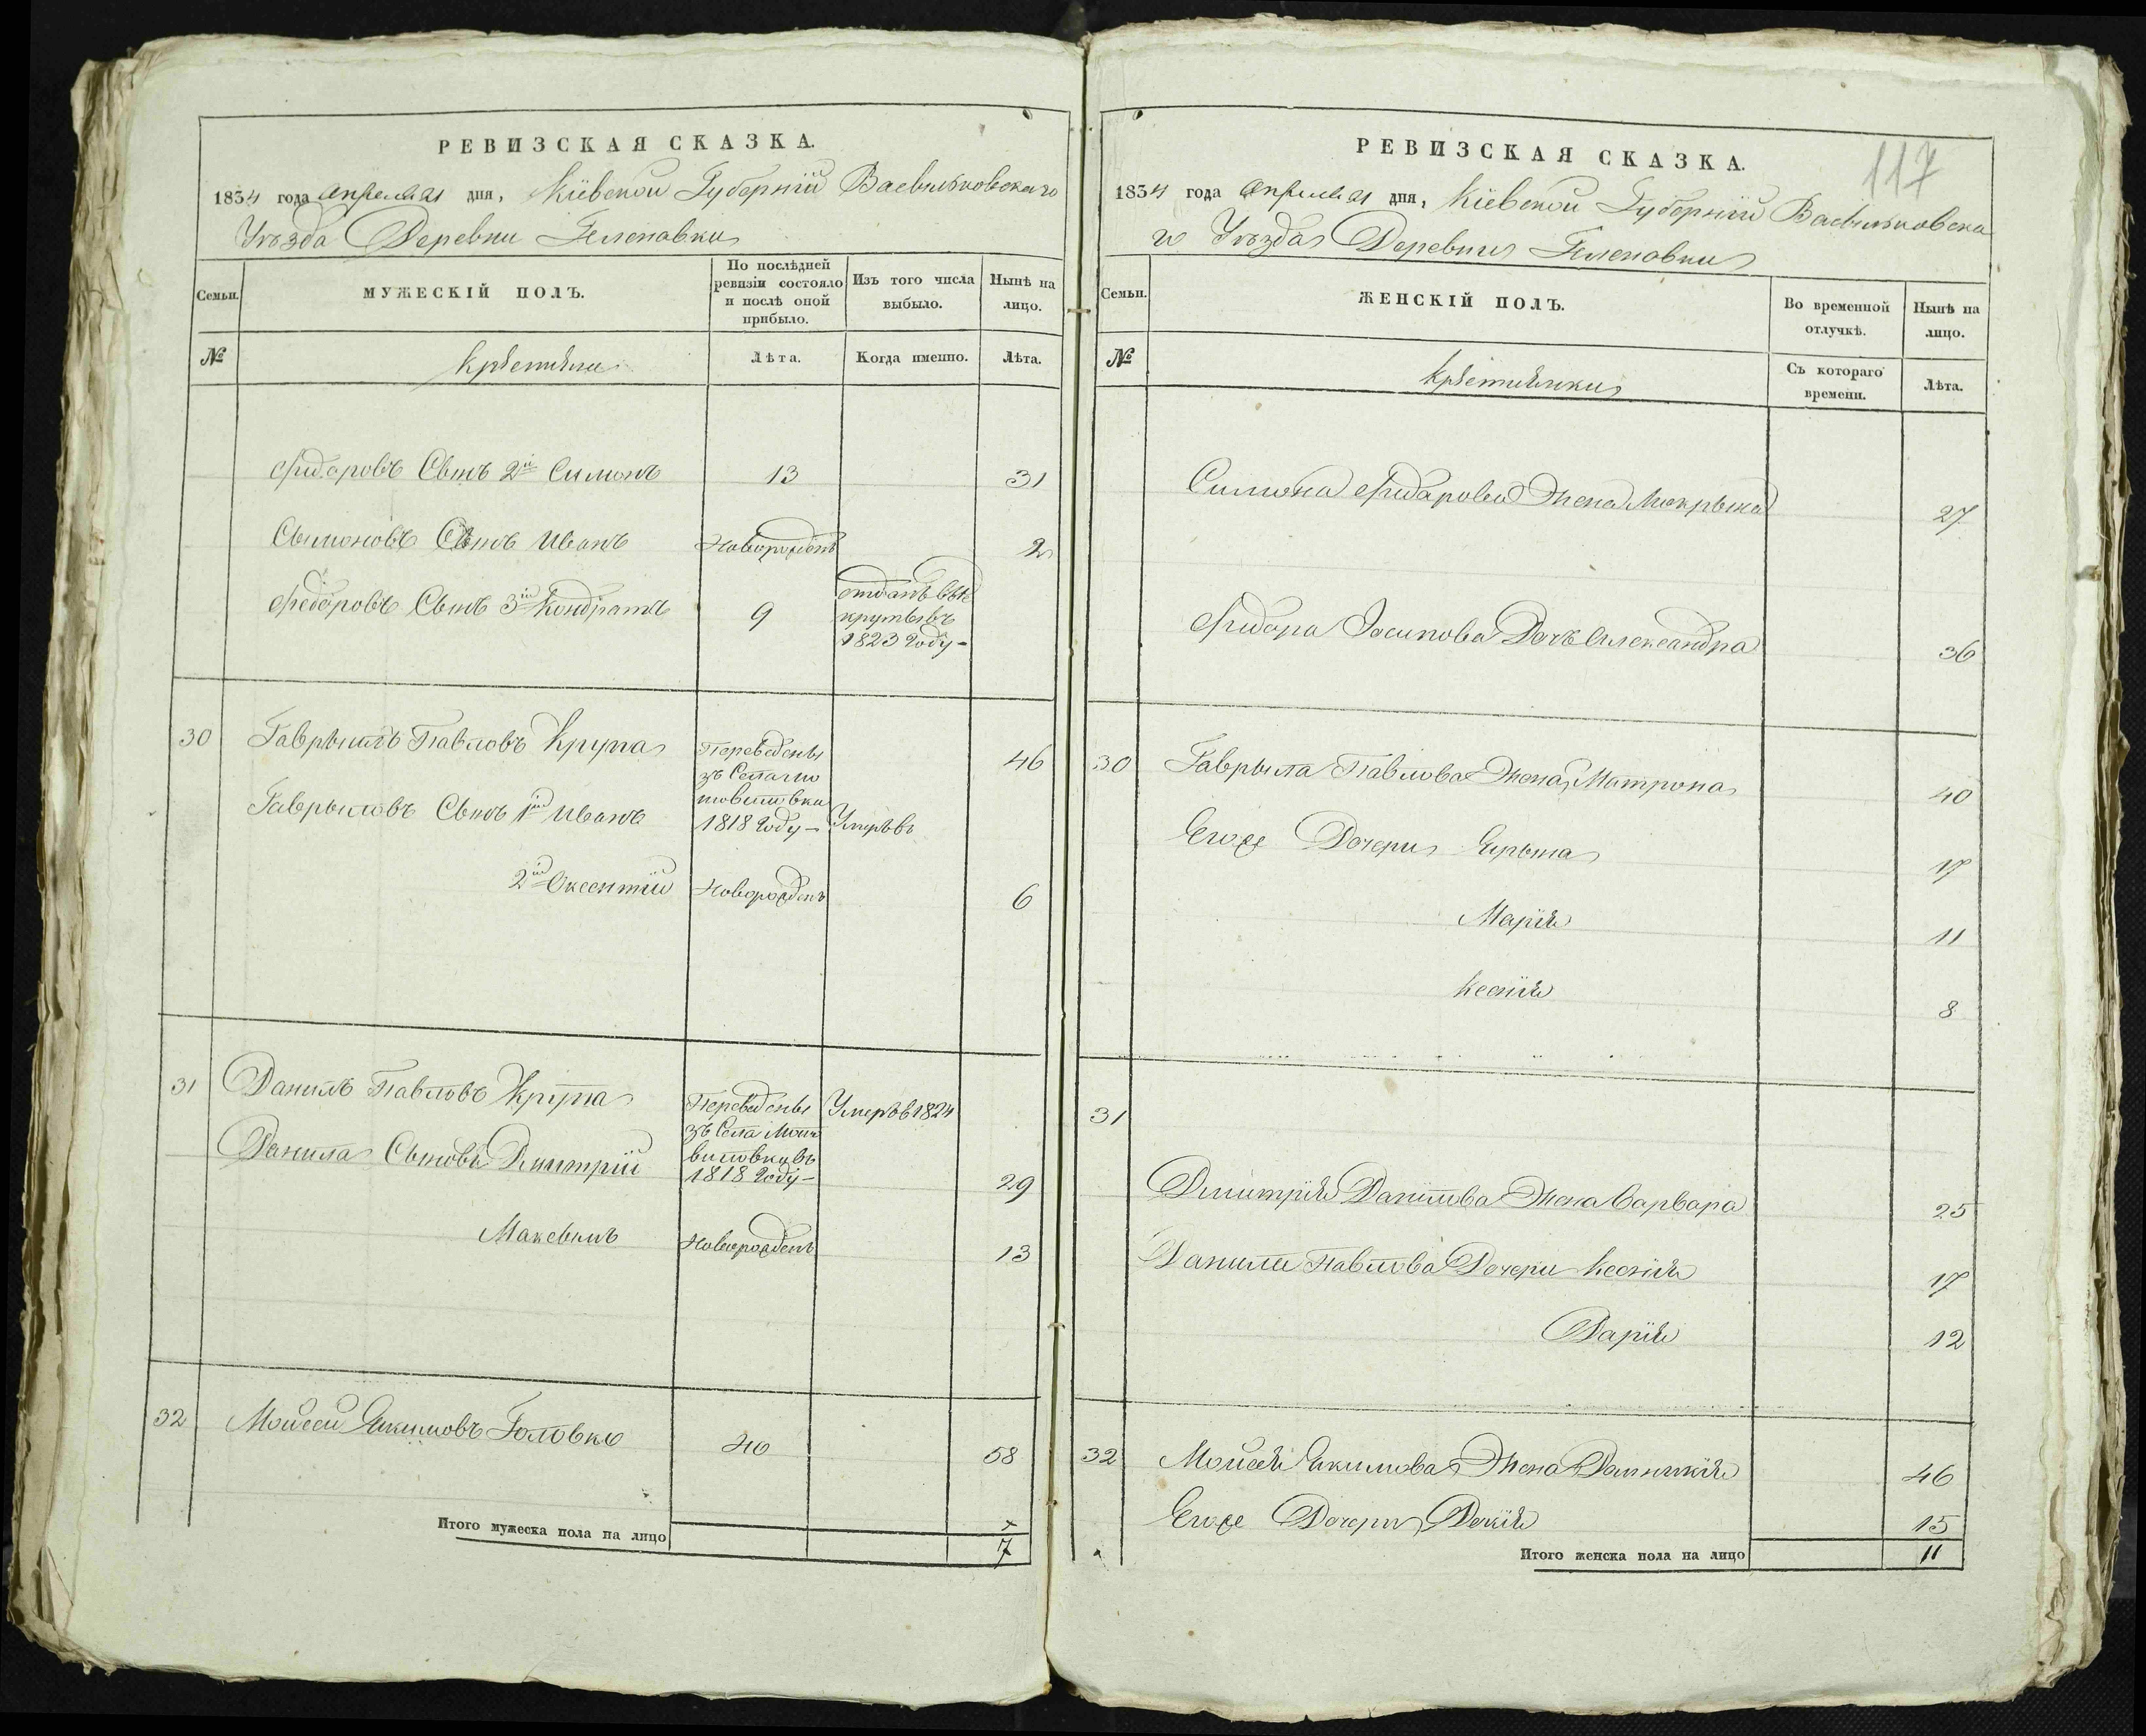 РЕВИЗСКАЯ СКАЗКА.
1834 года апреля 21 дня, Кіевской Губерніи Васильковскаго
Уѣзда Деревни Геленовки
Семьи.
МУЖЕСКІЙ ПОЛЪ.
По послѣдней
ревизіи состояло
и послѣ оной
прибыло.
Изъ того числа
выбыло.
Нынѣ на
лицо.
№
Крѣстяне
Лѣта.
Когда именно.
Лѣта.
Фидоровъ Сынъ 2й Симонъ 13 31
Сымоновъ Сынъ Иванъ Новорожденъ 2
Федоровъ Сынъ 3й Кондратъ 9
отданъ
1823 году-
30 Гаврыилъ Павловъ Крупа 46
Переведены
зъ Села Мо
товиловки
1818 году-
Гаврыловъ Сынъ 1й Иванъ Умеръ въ
2й Оксентій Новорожденъ 6
31 Данилъ Павловъ Крупа
Переведены
зъ Села Мото
виловки въ
1818 году-
Умеръ в 1824
Данила Сыновья Дмитрій 29
Максымъ Новорожденъ 13
32 Мойсей Якимовъ Головко 40 58
Итого мужеска пола на лицо 7
РЕВИЗСКАЯ СКАЗКА.
117
1834 года апреля 21 дня, Кіевской Губерніи Васильковска
го Уѣзда Деревни Геленовки
Семьи.
ЖЕНСКІЙ ПОЛЪ.
Во временной
отлучкѣ.
Нынѣ на
лицо.
№
Крѣстянки
Съ котораго
времени.
Лѣта.
Симона Фидарова Жена Мокрына 27
Фидора Іосипова Дочь Александра 36
30 Гаврыла Павлова Жена Матрона 40
Егоже Дочери Ирына 17
Марія 11
Ксенія 8
31
Дмитрія Данілова Жена Варвара 25
Данила Павлова Дочери Ксенія 17
Дарія 12
32 Мойсея Якимова Жена Домникія 46
Егоже Дочери 15
Итого женска пола на лицо 11